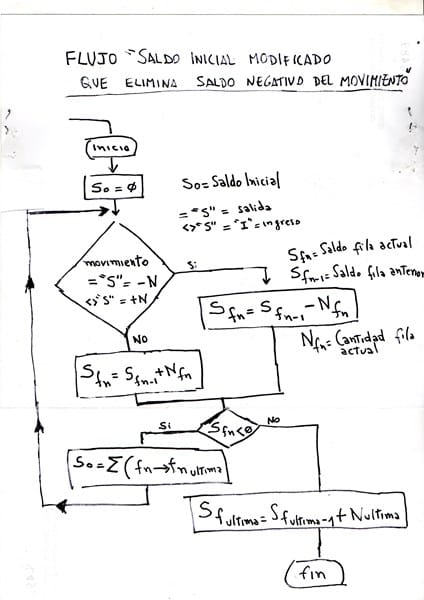 FLUJO "SALDO INICIAL MODIFICADO
QUE ELIMINA SALDO NEGATIVO DEL MOVIMIENTO"
inicio
So = 0
So = Saldo Inicial
= "S" = salida
<>"S" = "I" = ingreso
movimiento
= "S" = -N
<>"S" = +N
Si
Sfn = Saldo fila actual
Sfn-1 = Saldo fila anterior
Sfn = Sfn-1 - Nfn
NO
Nfn = Cantidad fila
actual
Sfn = Sfn-1 + Nfn
Si
Sfn<0
No
So = Σ(fn→fn ultima
Sfultima = Sfultima-1 + Nultima
fin